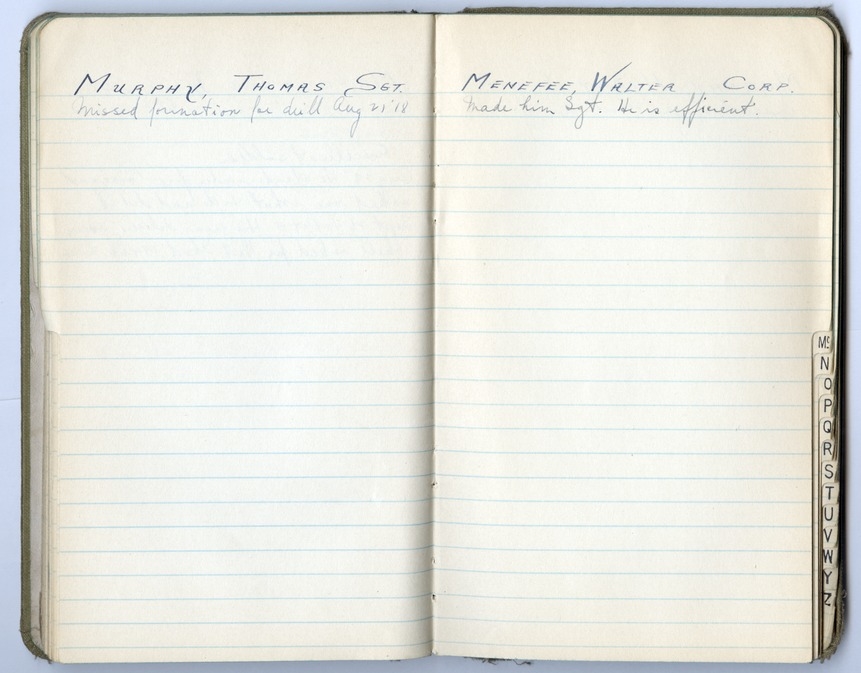 MURPHY, THOMAS SGT.
Missed formation for drill Aug 21 '18
MENEFEE, WALTER CORP.
Made him Sgt. He is efficient.
Mc
N
O
P
Q
R
S
T
U
V
W
Y
Z